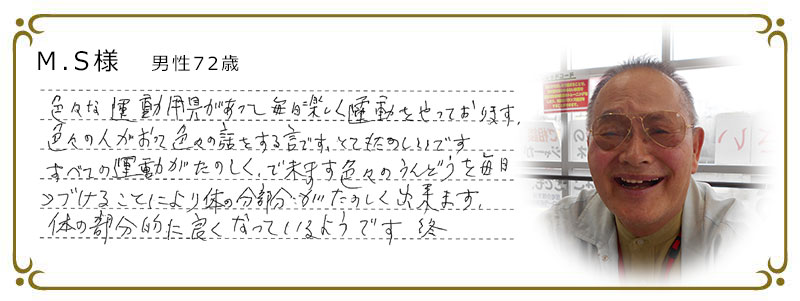 M.S様 男性72歳
色々な運動用具があって毎日楽しく運動をやっております。
色々の人がおって色々の話をする言です。とてもたのしいです
すべての運動がたのしく、で来ます色々のうんどうを毎日
つづけることにより体の分部分がたのしく出来ます。
体の部分的に良くなっているようです 終